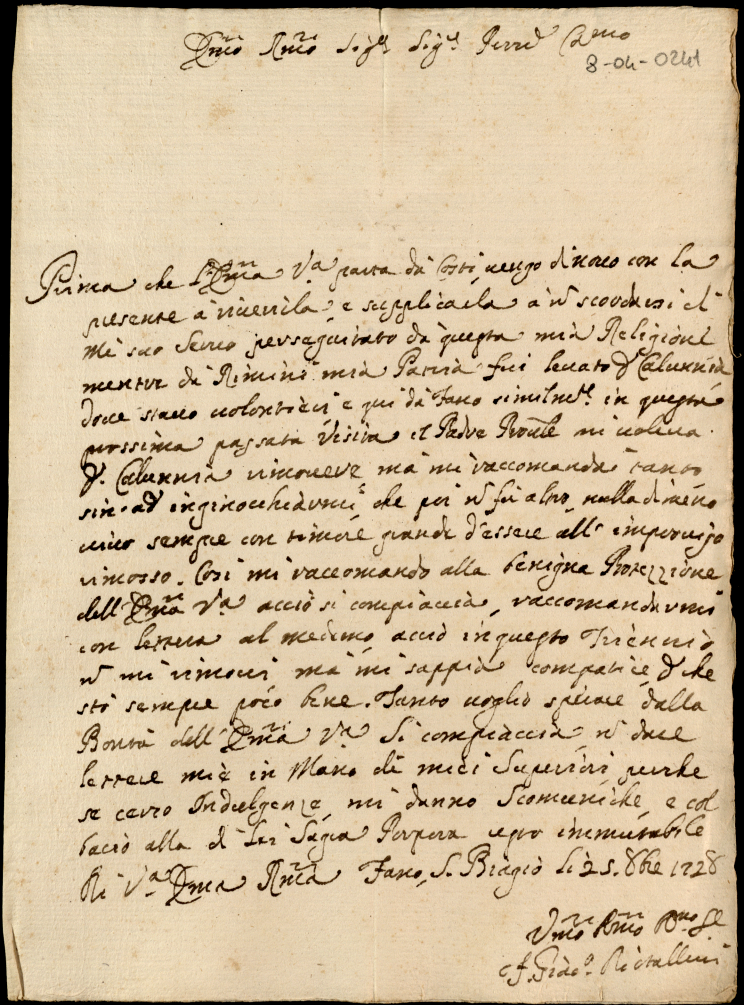 Emo Rmo Sigr Sigr Prne Colmo
8-04-0241
Prima che l'Emza Va parta da Costi vengo di novo con la
presente à riverirla e supplicarla à nò scordarsi di
Me suo Servo perseguitato da questa mia Religione
mentre da Rimini mia Patria fui levato p Calunnia
dove stavo volontieri e qui da Fano similmte in questa
prossima passata Visita il Padre Provle mi voleva
p Calunnia rimovere, ma mi raccomandai tanto
sin ad inginocchiarmi che poi nò fu altro nulladimeno
vivo sempre con timore grande d'essere all'improviso
rimosso. Così mi raccomando alla benigna Protezzione
dell'Emza Va acciò si compiaccia raccomandarmi
con lettera al medemo acciò in questo Triennio
nò mi rimovi ma mi sappia compatire p che
stò sempre poco bene. Tanto voglio sperare dalla
Bontà dell'Emza Va Si compiaccia nò dare
lettere mie in Mano de miei Superiori perche
se cerco Indulgenze mi danno Scomuniche, e col
bacio alla di Lei Sagra Porpora resto immutabile
Di Va Emza Rma Fano, S. Biagio li 25. 8bre 1728
Umo Rmo
F. Giaco.